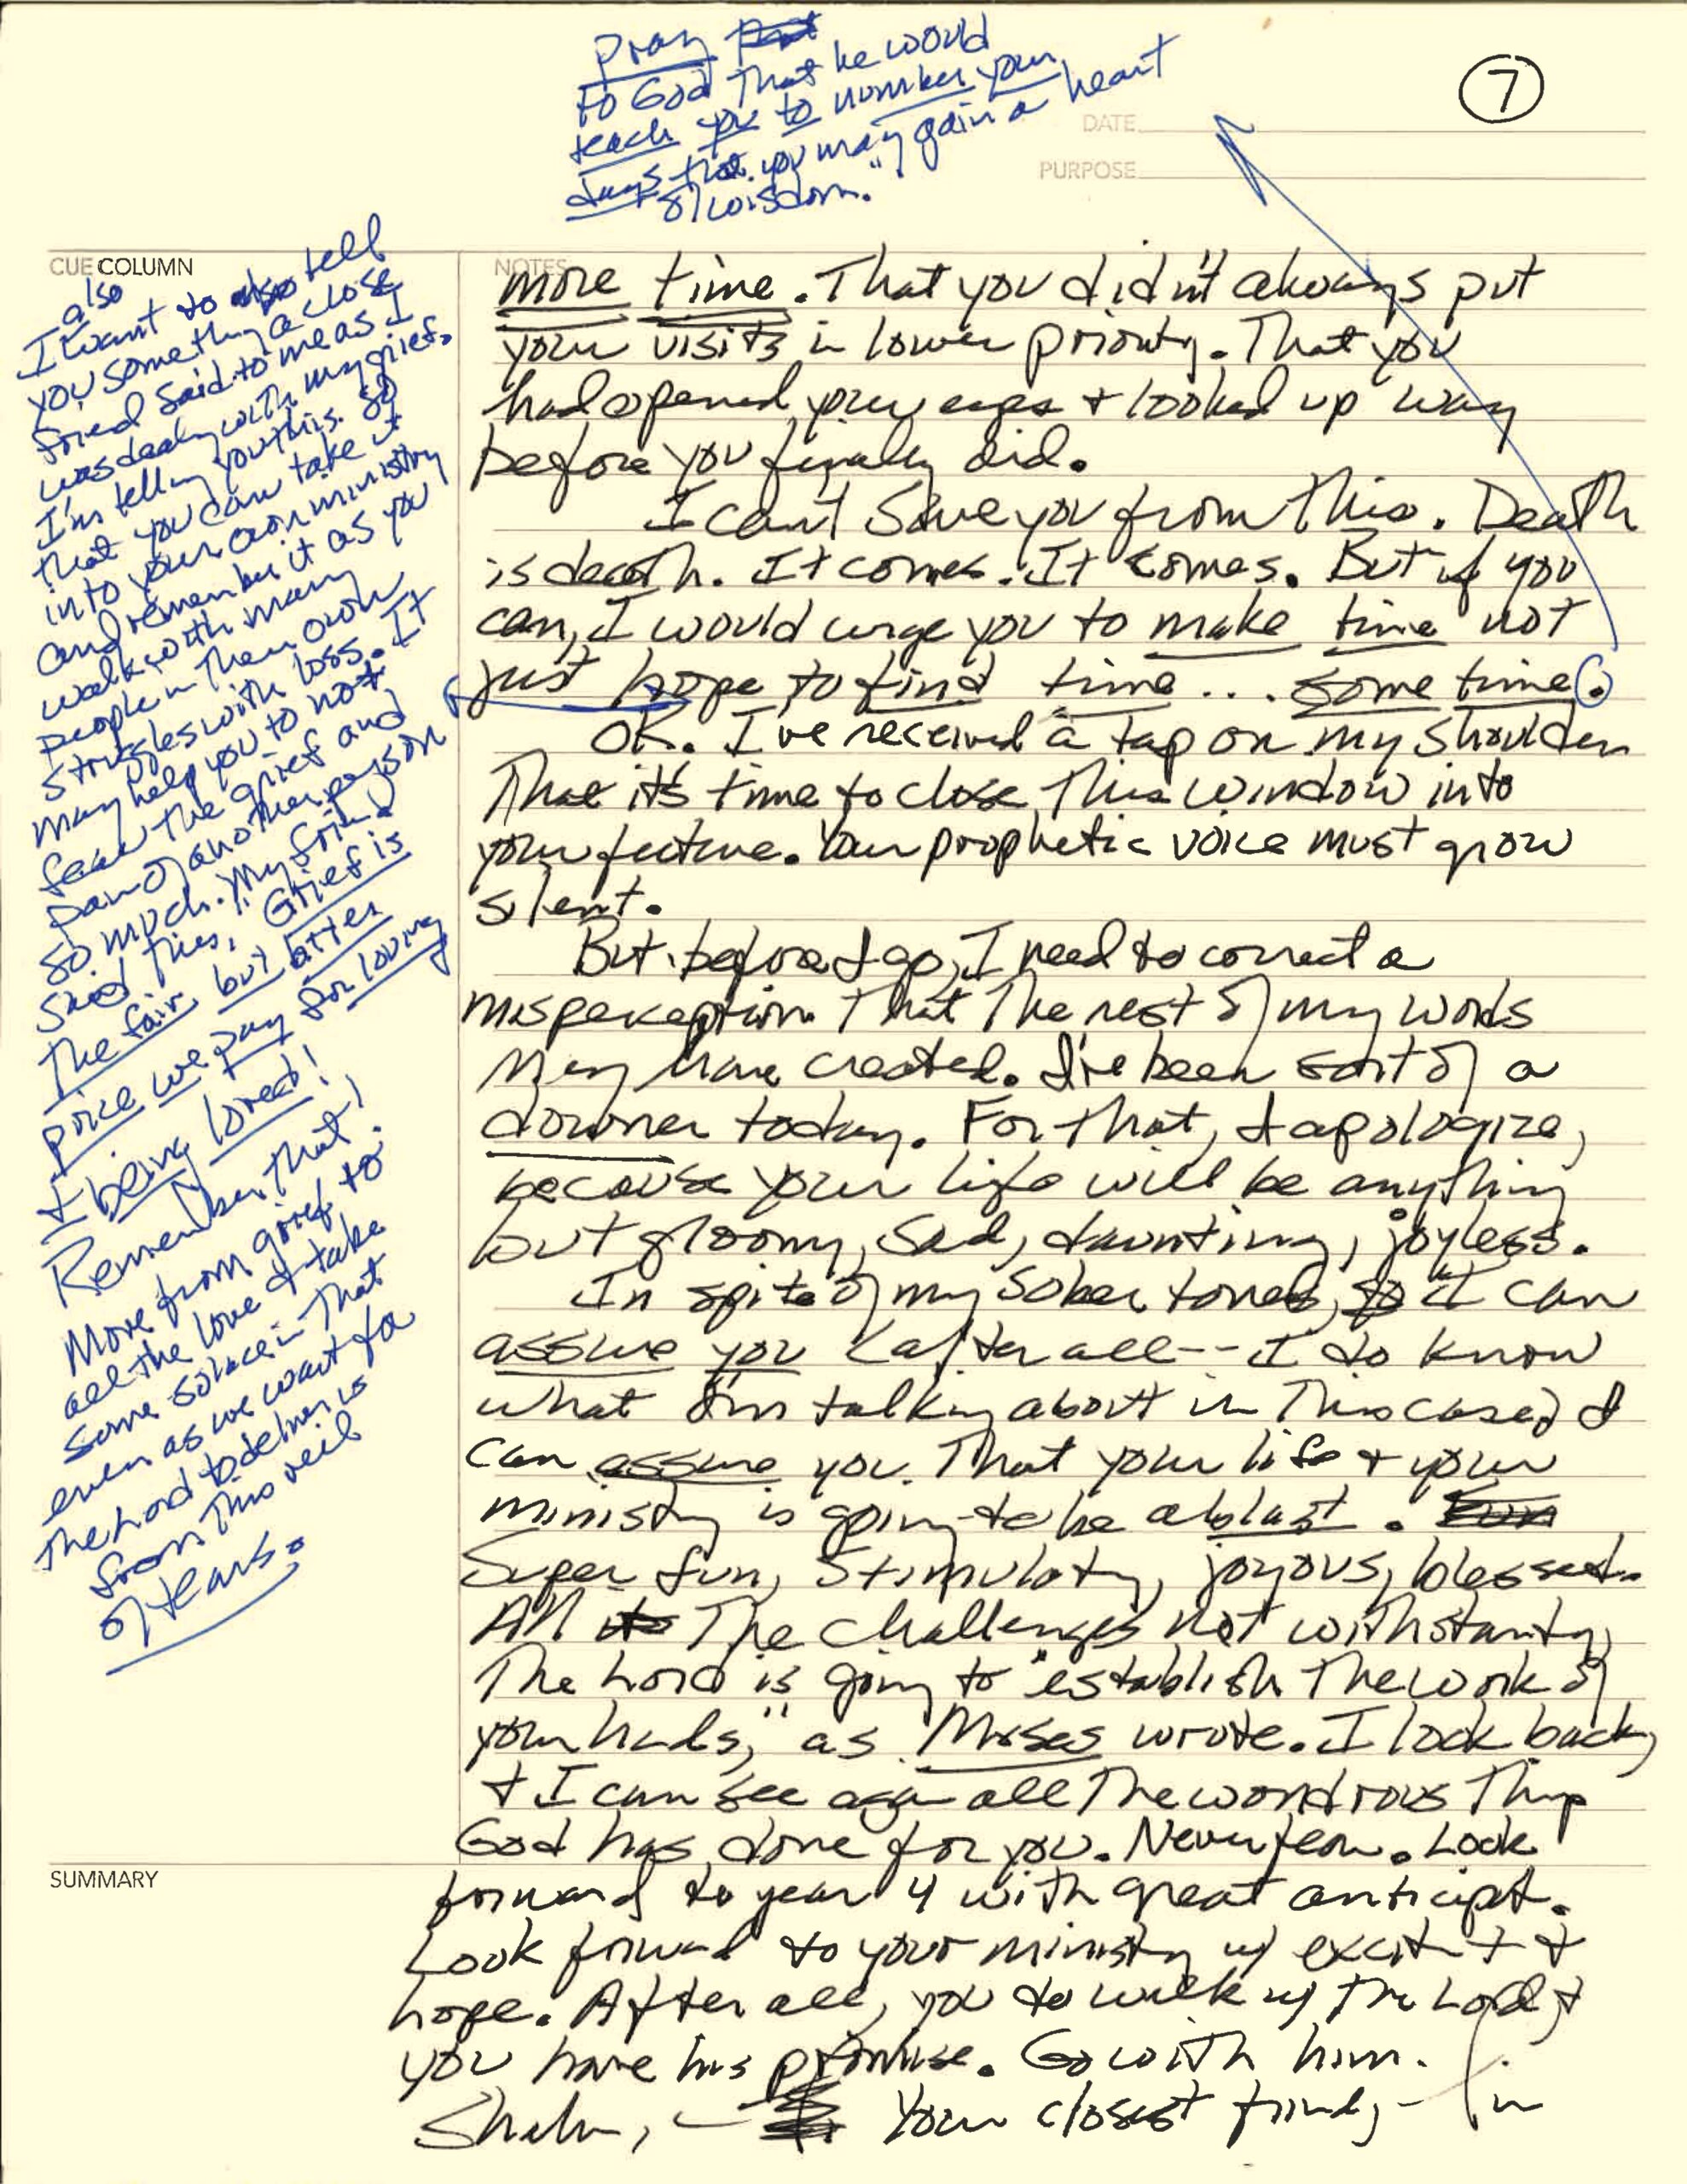 pray
to God that he would
teach you to number your
days that you may gain a heart
of wisdom."
7
DATE
PURPOSE
CUE COLUMN
also
I want to also tell
you something a close
friend said to me as I
was dealing with my grief.
I'm telling you this so
that you can take it
into your own ministry
and remember it as you
walk with many
people in their own
struggles with loss. It
may help you to not
fear the grief and
pain of another person
so much. My friend
said this, "Grief is
the fair but bitter
price we pay for loving
& being loved!
Remember that!
Move from grief to
all the love & take
some solace in that
even as we wait for
the Lord to deliver us
from this veil
of tears.
NOTES
more time. That you didn't always put
your visits in lower priority. That you
had opened your eyes & looked up way
before you finally did.
I can't save you from this. Death
is death. It comes. It comes. But if you
can, I would urge you to make time not
just hope to find time... some time.
OK. I've received a tap on my shoulder
that it's time to close this window into
your future. Your prophetic voice must grow
silent.
But before I go, I need to correct a
misperception that the rest of my words
may have created. I've been sort of a
downer today. For that, I apologize,
because your life will be anything
but gloomy, sad, daunting, joyless.
In spite of my sober tones, I can
assure you (after all -- I do know
what I'm talking about in this case) I
can assure you that your life & your
ministry is going to be a blast. Fun
Super fun, stimulating, joyous, blessed.
All the challenges not withstanding,
the Lord is going to "establish the work of
your hands," as Moses wrote. I look back,
& I can see again all the wondrous things
God has done for you. Never fear. Look
SUMMARY
forward to year 4 with great anticipt.
Look forward to your ministry w/ excitmt &
hope. After all, you do walk w/ the Lord &
you have his promise. Go with him.
Your closest friend, - Jim